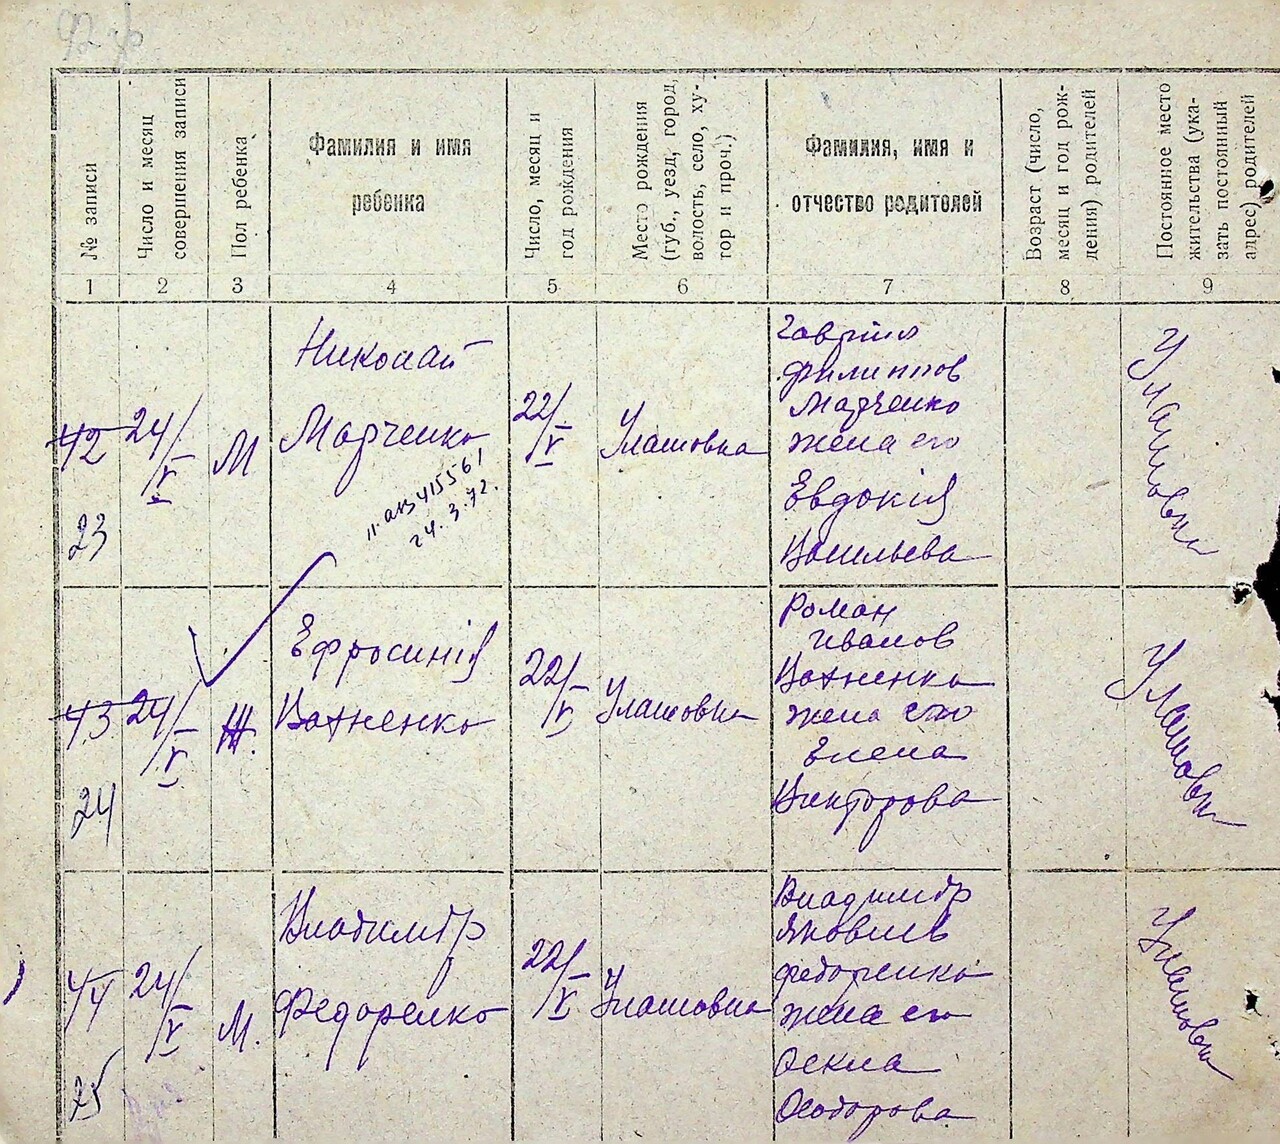 № записи
Число и месяц
совершения записи
Пол ребенка
Фамилия и имя
ребенка
Число, месяц и
год рождения
Место рождения
(губ., уезд, город,
волость, село, ху-
тор и проч.)
Фамилия, имя и
отчество родителей
Возраст (число,
месяц и год рож-
дения) родителей
Постоянное место
жительства (ука-
зать постоянный
адрес) родителей
1 2 3 4 5 6 7 8 9
42
23
24/V
М
Николай
Марченко
24.3.72.
22/V
Улашовка
Гавриил
Филиппов
Марченко
жена его
Евдокія
Васильева
Улашовка
43
24
24/V
Ж.
Ефросинія
Вахненко
22/V
Улашовка
Роман
Иванов
Вахненко
жена его
Елена
Викторова
Улашовка
44
25
24/V
М.
Владимір
Федоренко
22/V
Улашовка
Владимір
Яковлев
Федоренко
жена его
Феодорова
Улашовка